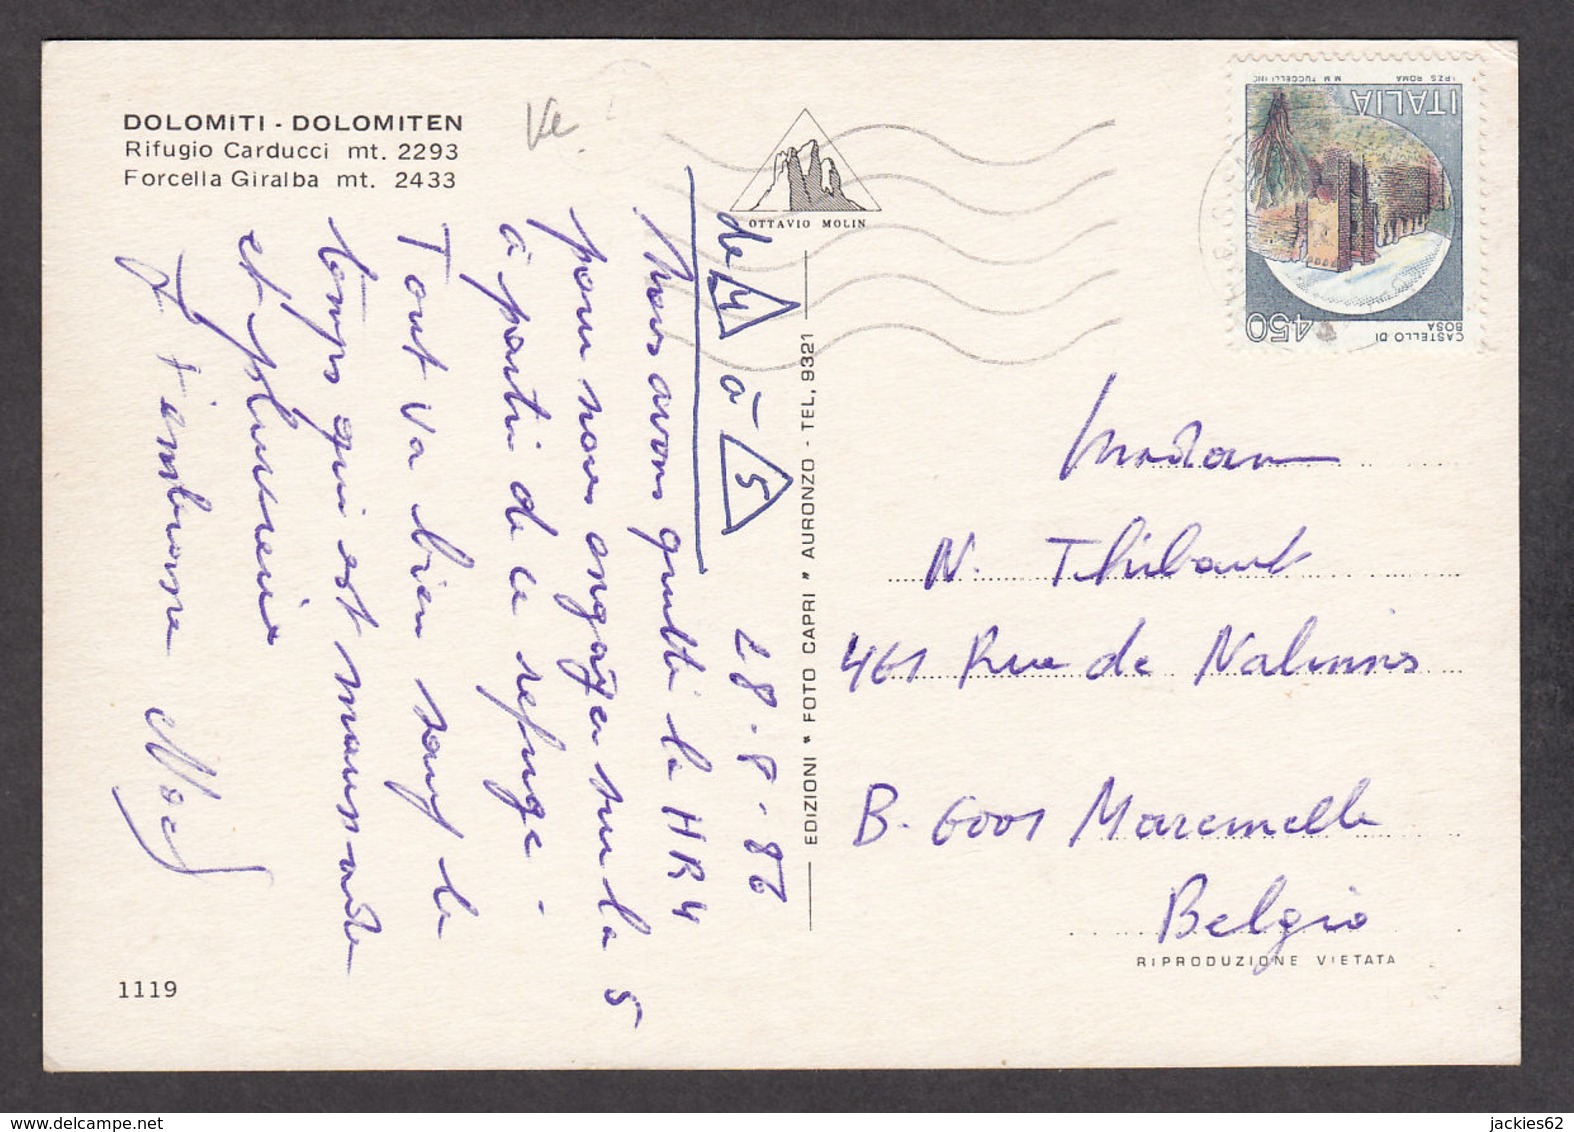 DOLOMITI - DOLOMITEN
Rifugio Carducci mt. 2293
Forcella Giralba mt. 2433
Ve
OTTAVIO MOLIN
de 4 à 5
28-8-86
Nous avons quitté la HR4
pour nous engager sur la 5
à partir de ce refuge.
Tout va bien sauf le
temps qui est maussade
et pluvieux
Je t'embrasse
1119
EDIZIONI "FOTO CAPRI" AURONZO - TEL. 9321
I.P.Z.S. ROMA
M.M. TUCCELLI INC.
ITALIA
450
CASTELLO DI
BOSA
Madame
N. Thibaut
461 Rue de Nalinnes
B. 6001 Marcinelle
Belgio
RIPRODUZIONE VIETATA
jackies62